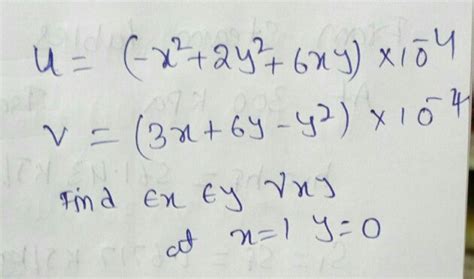 u = (-x²+2y²+6xy) ×10⁻⁴
v = (3x+6y-y²) ×10⁻⁴
Find εx εy γxy
at x=1 y=0